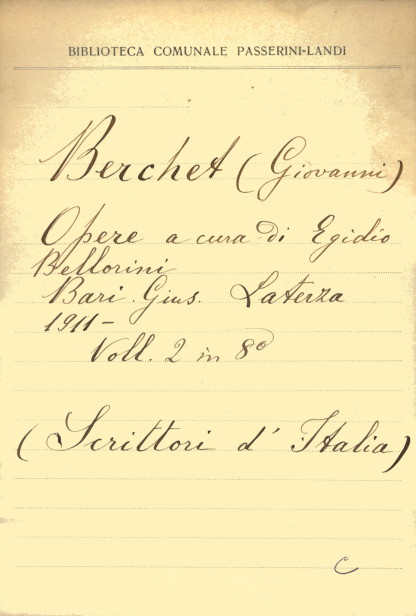 BIBLIOTECA COMUNALE PASSERINI-LANDI
Berchet (Giovanni)
Opere a cura di Egidio
Bellorini
Bari. Gius. Laterza
1911-
Voll. 2 in 8º
(Scrittori d'Italia)
C